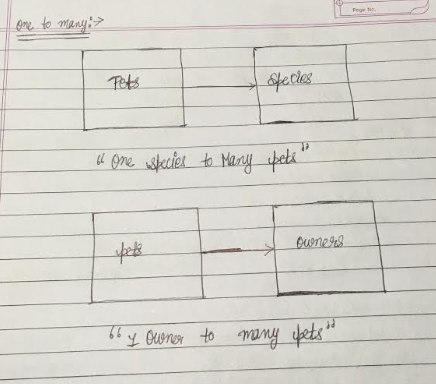 Page No.
one to many:->
Pets
Species
"One species to Many pets"
pets
owners
"1 Owner to many pets"